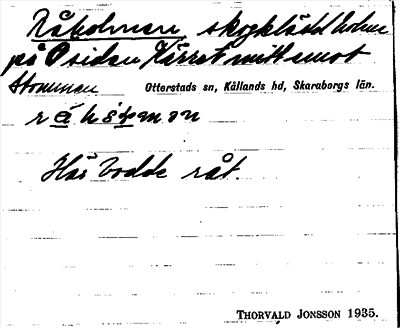 Råholmen skogklädd holme
på Ö sidan Kärret mitt emot
Stommen Otterstads sn, Kållands hd, Skaraborgs län.
Här bodde råt.
THORVALD JONSSON 1935.